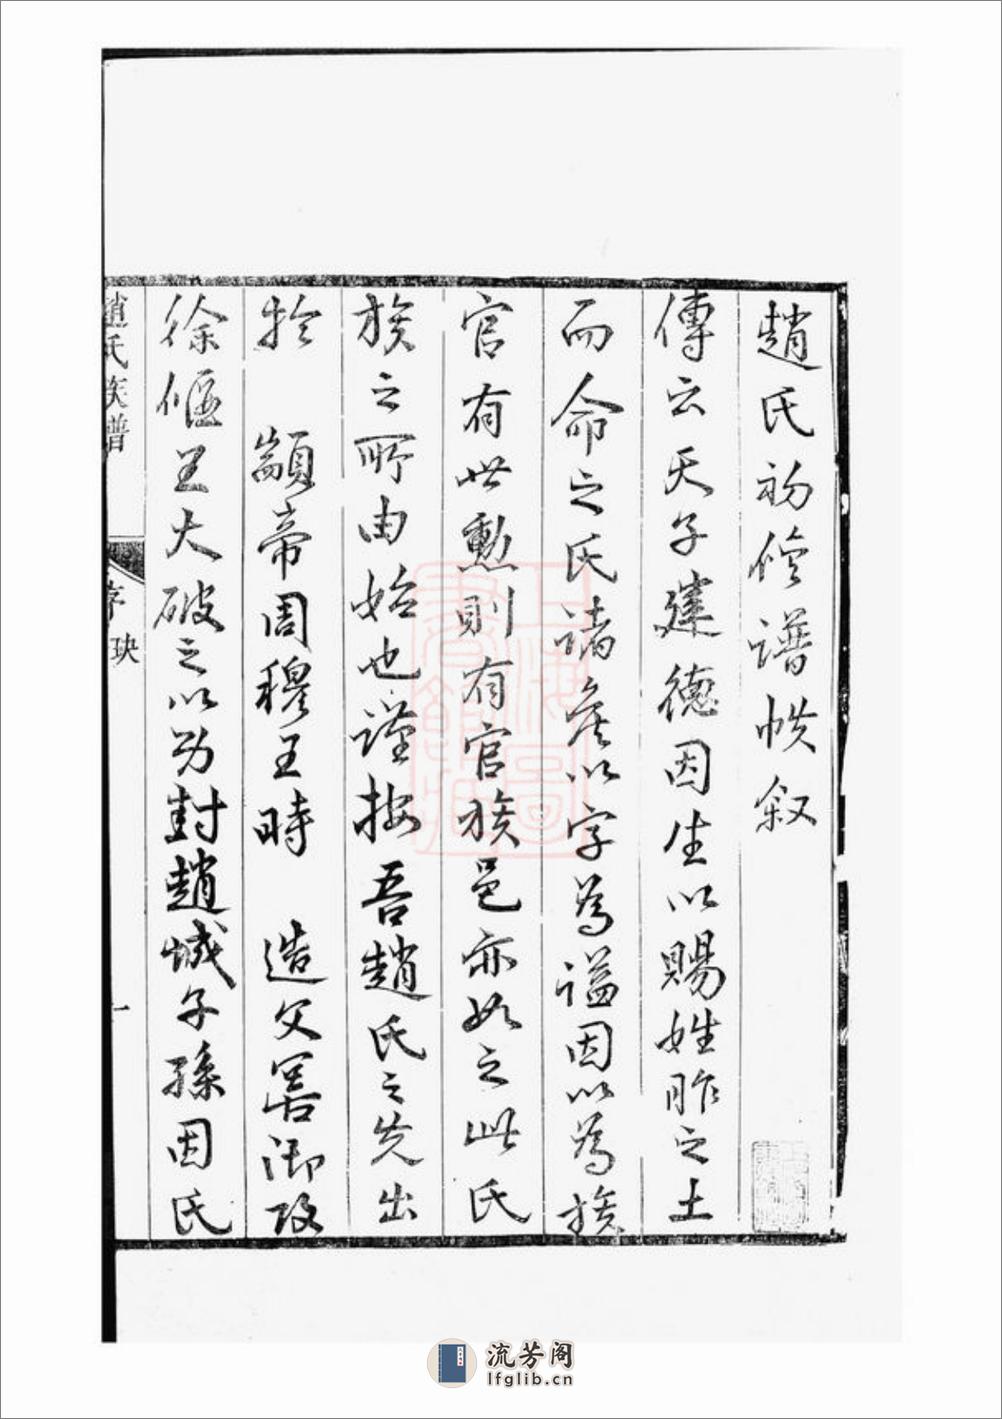 趙氏初修譜帙叙
傳云天子建德因生以賜姓胙之土
而命之氏諸侯以字為謚因以為族
官有世勲則有官族邑亦如之此氏
族之所由始也謹按吾趙氏之先出
於 顓帝周穆王時 造父善御攻
徐偃王大破之以功封趙城子孫因氏
趙氏族譜
序
一
上海圖書館藏
流芳阁
lfglib.cn